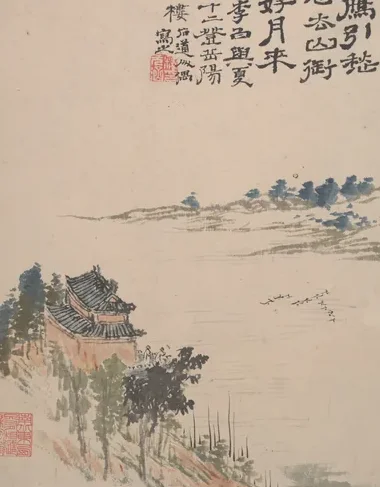 鴈引愁
心去山銜
好月來
李白與夏
十二登岳陽
樓
石道人偶
寫